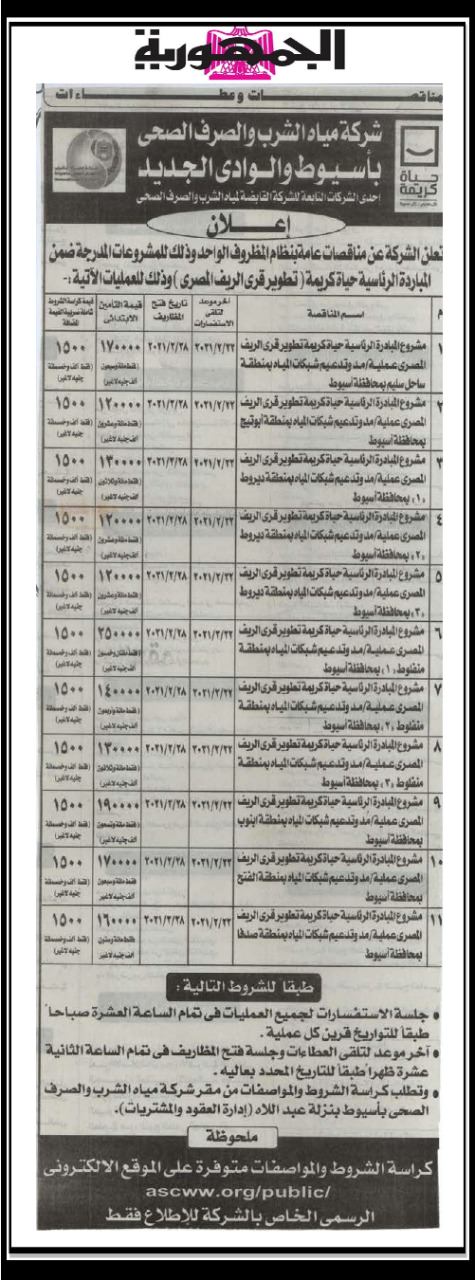 الجمهورية
مناقصات وعطاءات
شركة مياه الشرب والصرف الصحى
بأسيوط والوادى الجديد
احدى الشركات التابعة للشركة القابضة لمياه الشرب والصرف الصحى
حياة
كريمة
إعلان
تعلن الشركة عن مناقصات عامة بنظام المظروف الواحد وذلك للمشروعات المدرجة ضمن
المبادرة الرئاسية حياة كريمة (تطوير قرى الريف المصرى) وذلك للعمليات الآتية :-
م
اسم المناقصة
اخر موعد
لتلقى
الاستفسارات
تاريخ فتح
المظاريف
قيمة التأمين
الابتدائى
قيمة كراسة الشروط
شاملة ضريبة القيمة
المضافة
١ مشروع المبادرة الرئاسية حياة كريمة تطوير قرى الريف ٢٠٢١/٢/٢٢ ٢٠٢١/٢/٢٨ ١٧٠٠٠٠ ١٥٠٠
المصرى عملية/ مد وتدعيم شبكات المياه بمنطقة (فقط مائة وسبعون (فقط الف وخمسمائة
ساحل سليم بمحافظة أسيوط الف جنيه لاغير) جنيه لاغير)
٢ مشروع المبادرة الرئاسية حياة كريمة تطوير قرى الريف ٢٠٢١/٢/٢٢ ٢٠٢١/٢/٢٨ ١٢٠٠٠٠ ١٥٠٠
المصرى عملية/ مد وتدعيم شبكات المياه بمنطقة أبوتيج (فقط مائة وعشرين (فقط الف وخمسمائة
بمحافظة أسيوط الف جنيه لاغير) جنيه لاغير)
٣ مشروع المبادرة الرئاسية حياة كريمة تطوير قرى الريف ٢٠٢١/٢/٢٢ ٢٠٢١/٢/٢٨ ١٣٠٠٠٠ ١٥٠٠
المصرى عملية/ مد وتدعيم شبكات المياه بمنطقة ديروط (فقط مائة وثلاثون (فقط الف وخمسمائة
«١» بمحافظة أسيوط الف جنيه لاغير) جنيه لاغير)
٤ مشروع المبادرة الرئاسية حياة كريمة تطوير قرى الريف ٢٠٢١/٢/٢٢ ٢٠٢١/٢/٢٨ ١٢٠٠٠٠ ١٥٠٠
المصرى عملية/ مد وتدعيم شبكات المياه بمنطقة ديروط (فقط مائة وعشرين (فقط الف وخمسمائة
«٢» بمحافظة أسيوط الف جنيه لاغير) جنيه لاغير)
٥ مشروع المبادرة الرئاسية حياة كريمة تطوير قرى الريف ٢٠٢١/٢/٢٢ ٢٠٢١/٢/٢٨ ١٢٠٠٠٠ ١٥٠٠
المصرى عملية/ مد وتدعيم شبكات المياه بمنطقة ديروط (فقط مائة وعشرين (فقط الف وخمسمائة
«٣» بمحافظة أسيوط الف جنيه لاغير) جنيه لاغير)
٦ مشروع المبادرة الرئاسية حياة كريمة تطوير قرى الريف ٢٠٢١/٢/٢٢ ٢٠٢١/٢/٢٨ ٢٥٠٠٠٠ ١٥٠٠
المصرى عملية/ مد وتدعيم شبكات المياه بمنطقة (فقط مائتان وخمسون (فقط الف وخمسمائة
منفلوط «١» بمحافظة أسيوط الف جنيه لاغير) جنيه لاغير)
٧ مشروع المبادرة الرئاسية حياة كريمة تطوير قرى الريف ٢٠٢١/٢/٢٢ ٢٠٢١/٢/٢٨ ١٤٠٠٠٠ ١٥٠٠
المصرى عملية/ مد وتدعيم شبكات المياه بمنطقة (فقط مائة وأربعون (فقط الف وخمسمائة
منفلوط «٢» بمحافظة أسيوط الف جنيه لاغير) جنيه لاغير)
٨ مشروع المبادرة الرئاسية حياة كريمة تطوير قرى الريف ٢٠٢١/٢/٢٢ ٢٠٢١/٢/٢٨ ١٣٠٠٠٠ ١٥٠٠
المصرى عملية/ مد وتدعيم شبكات المياه بمنطقة (فقط مائة وثلاثون (فقط الف وخمسمائة
منفلوط «٣» بمحافظة أسيوط الف جنيه لاغير) جنيه لاغير)
٩ مشروع المبادرة الرئاسية حياة كريمة تطوير قرى الريف ٢٠٢١/٢/٢٢ ٢٠٢١/٢/٢٨ ١٩٠٠٠٠ ١٥٠٠
المصرى عملية/ مد وتدعيم شبكات المياه بمنطقة ابنوب (فقط مائة وتسعون (فقط الف وخمسمائة
بمحافظة أسيوط الف جنيه لاغير) جنيه لاغير)
١٠ مشروع المبادرة الرئاسية حياة كريمة تطوير قرى الريف ٢٠٢١/٢/٢٢ ٢٠٢١/٢/٢٨ ١٧٠٠٠٠ ١٥٠٠
المصرى عملية/ مد وتدعيم شبكات المياه بمنطقة الفتح (فقط مائة وسبعون (فقط الف وخمسمائة
بمحافظة أسيوط الف جنيه لاغير) جنيه لاغير)
١١ مشروع المبادرة الرئاسية حياة كريمة تطوير قرى الريف ٢٠٢١/٢/٢٢ ٢٠٢١/٢/٢٨ ١٦٠٠٠٠ ١٥٠٠
المصرى عملية/ مد وتدعيم شبكات المياه بمنطقة صدفا (فقط مائة وستون (فقط الف وخمسمائة
بمحافظة أسيوط الف جنيه لاغير) جنيه لاغير)
طبقا للشروط التالية :
• جلسة الاستفسارات لجميع العمليات فى تمام الساعة العشرة صباحاً
طبقاً للتواريخ قرين كل عملية .
• آخر موعد لتلقى العطاءات وجلسة فتح المظاريف فى تمام الساعة الثانية
عشرة ظهراً طبقاً للتاريخ المحدد بعاليه .
• وتطلب كراسة الشروط والمواصفات من مقر شركة مياه الشرب والصرف
الصحى بأسيوط بنزلة عبد اللاه (إدارة العقود والمشتريات).
ملحوظة
كراسة الشروط والمواصفات متوفرة على الموقع الالكترونى
ascww.org/public/
الرسمى الخاص بالشركة للإطلاع فقط